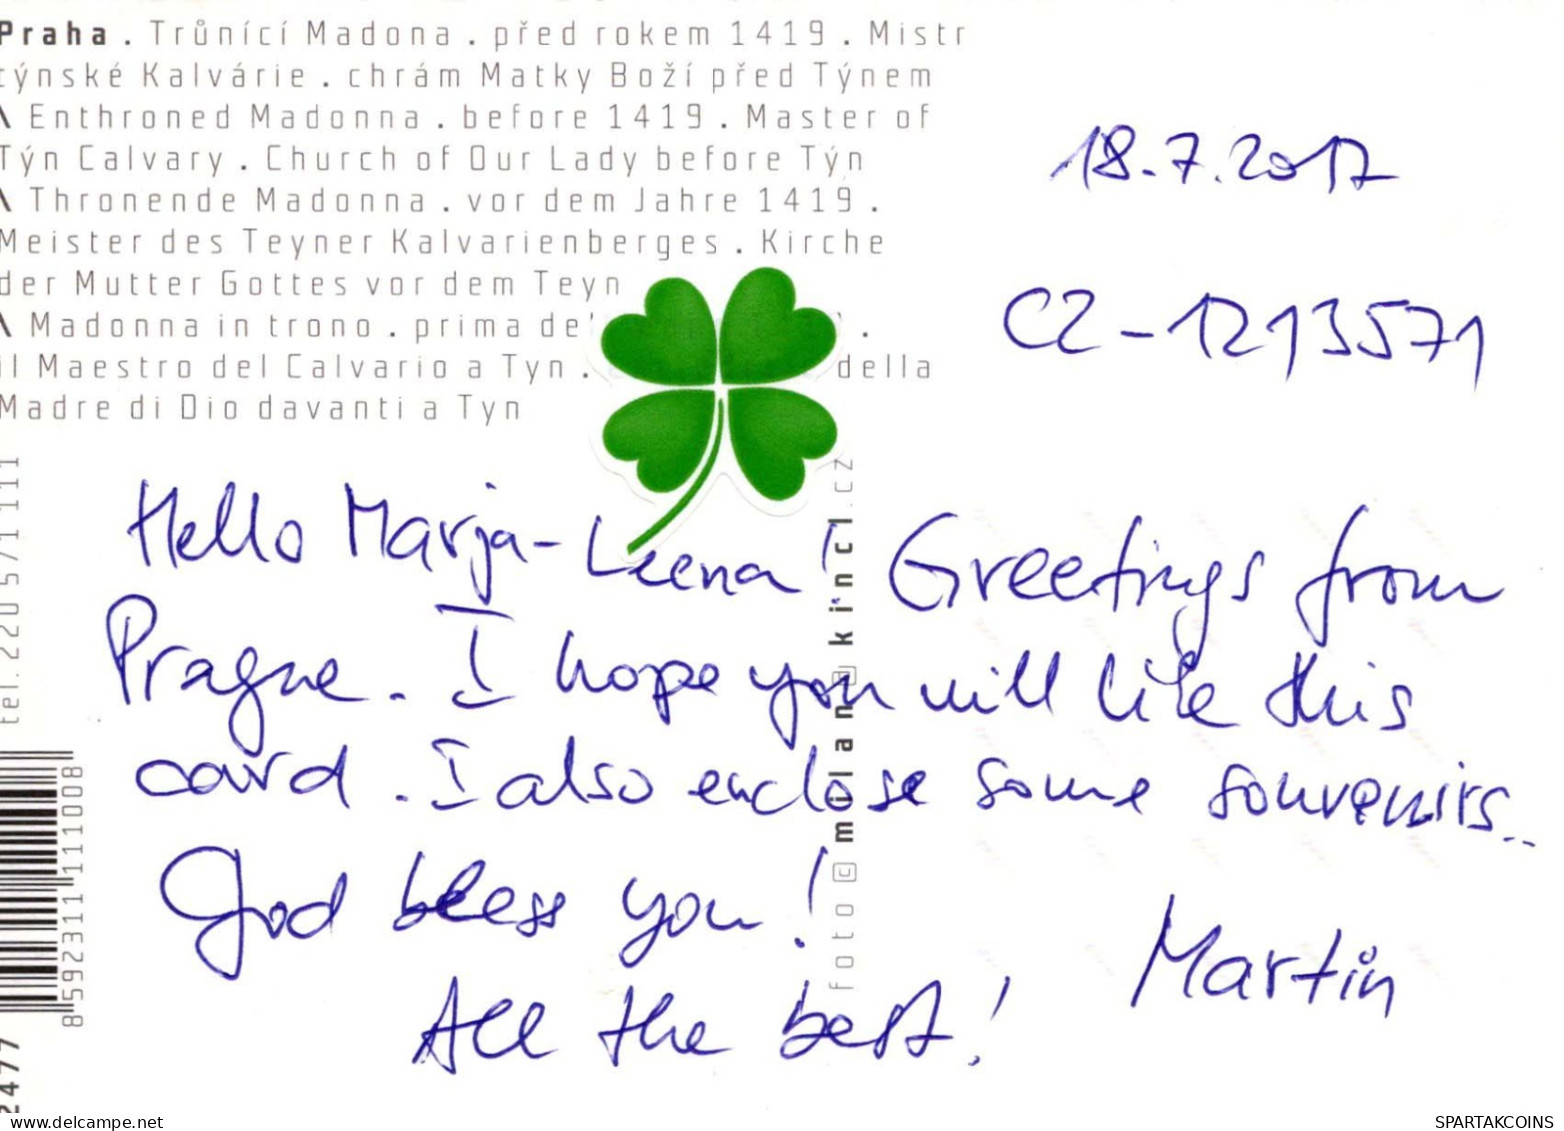 Praha . Trůnící Madona . před rokem 1419 . Mistr
týnské Kalvárie . chrám Matky Boží před Týnem
\ Enthroned Madonna . before 1419 . Master of
Týn Calvary . Church of Our Lady before Týn
\ Thronende Madonna . vor dem Jahre 1419 .
Meister des Teyner Kalvarienberges . Kirche
der Mutter Gottes vor dem Teyn
\ Madonna in trono . prima de' .
il Maestro del Calvario a Tyn . della
Madre di Dio davanti a Tyn
18.7.2017
CZ-1213571
Hello Marja-Leena! Greetings from
Prague. I hope you will like this
card. I also enclose some souvenirs..
God bless you!
All the best! Martin
foto © milan kincl.cz
tel. 220 571 111
8 592311 111008
2477
www.delcampe.net
SPARTAKCOINS